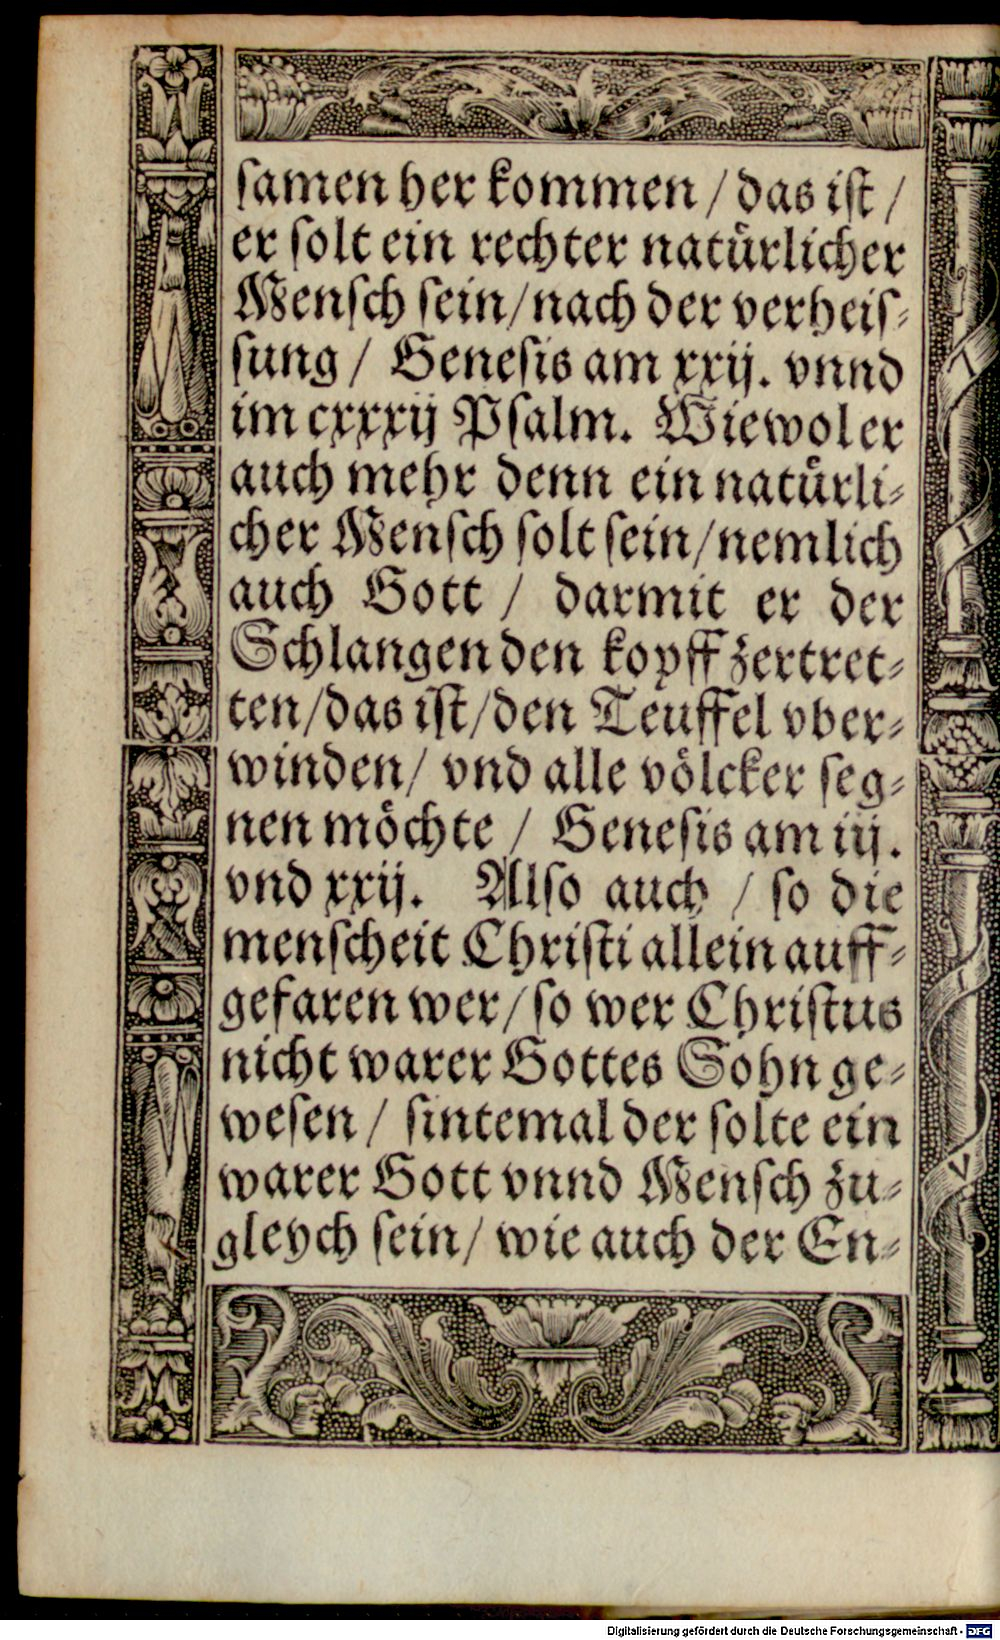 samen her kommen / das ist /
er solt ein rechter natürlicher
Mensch sein / nach der verheis-
sung / Genesis am xxij. vnnd
im cxxxij Psalm. Wiewol er
auch mehr denn ein natürli-
cher Mensch solt sein / nemlich
auch Gott / darmit er der
Schlangen den kopff zertret-
ten / das ist / den Teuffel vber-
winden / vnd alle völcker seg-
nen möchte / Genesis am iij.
vnd xxij. Also auch / so die
menscheit Christi allein auff-
gefaren wer / so wer Christus
nicht warer Gottes Sohn ge-
wesen / sintemal der solte ein
warer Gott vnnd Mensch zu-
gleych sein / wie auch der En-
Digitalisierung gefördert durch die Deutsche Forschungsgemeinschaft - DFG